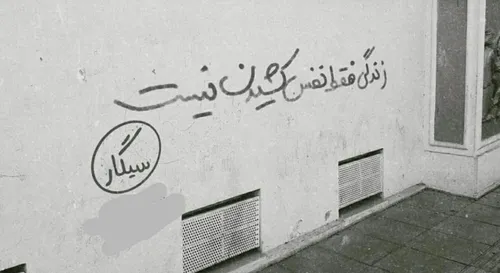 زندگی فقط نفس کشیدن نیست
سیگار